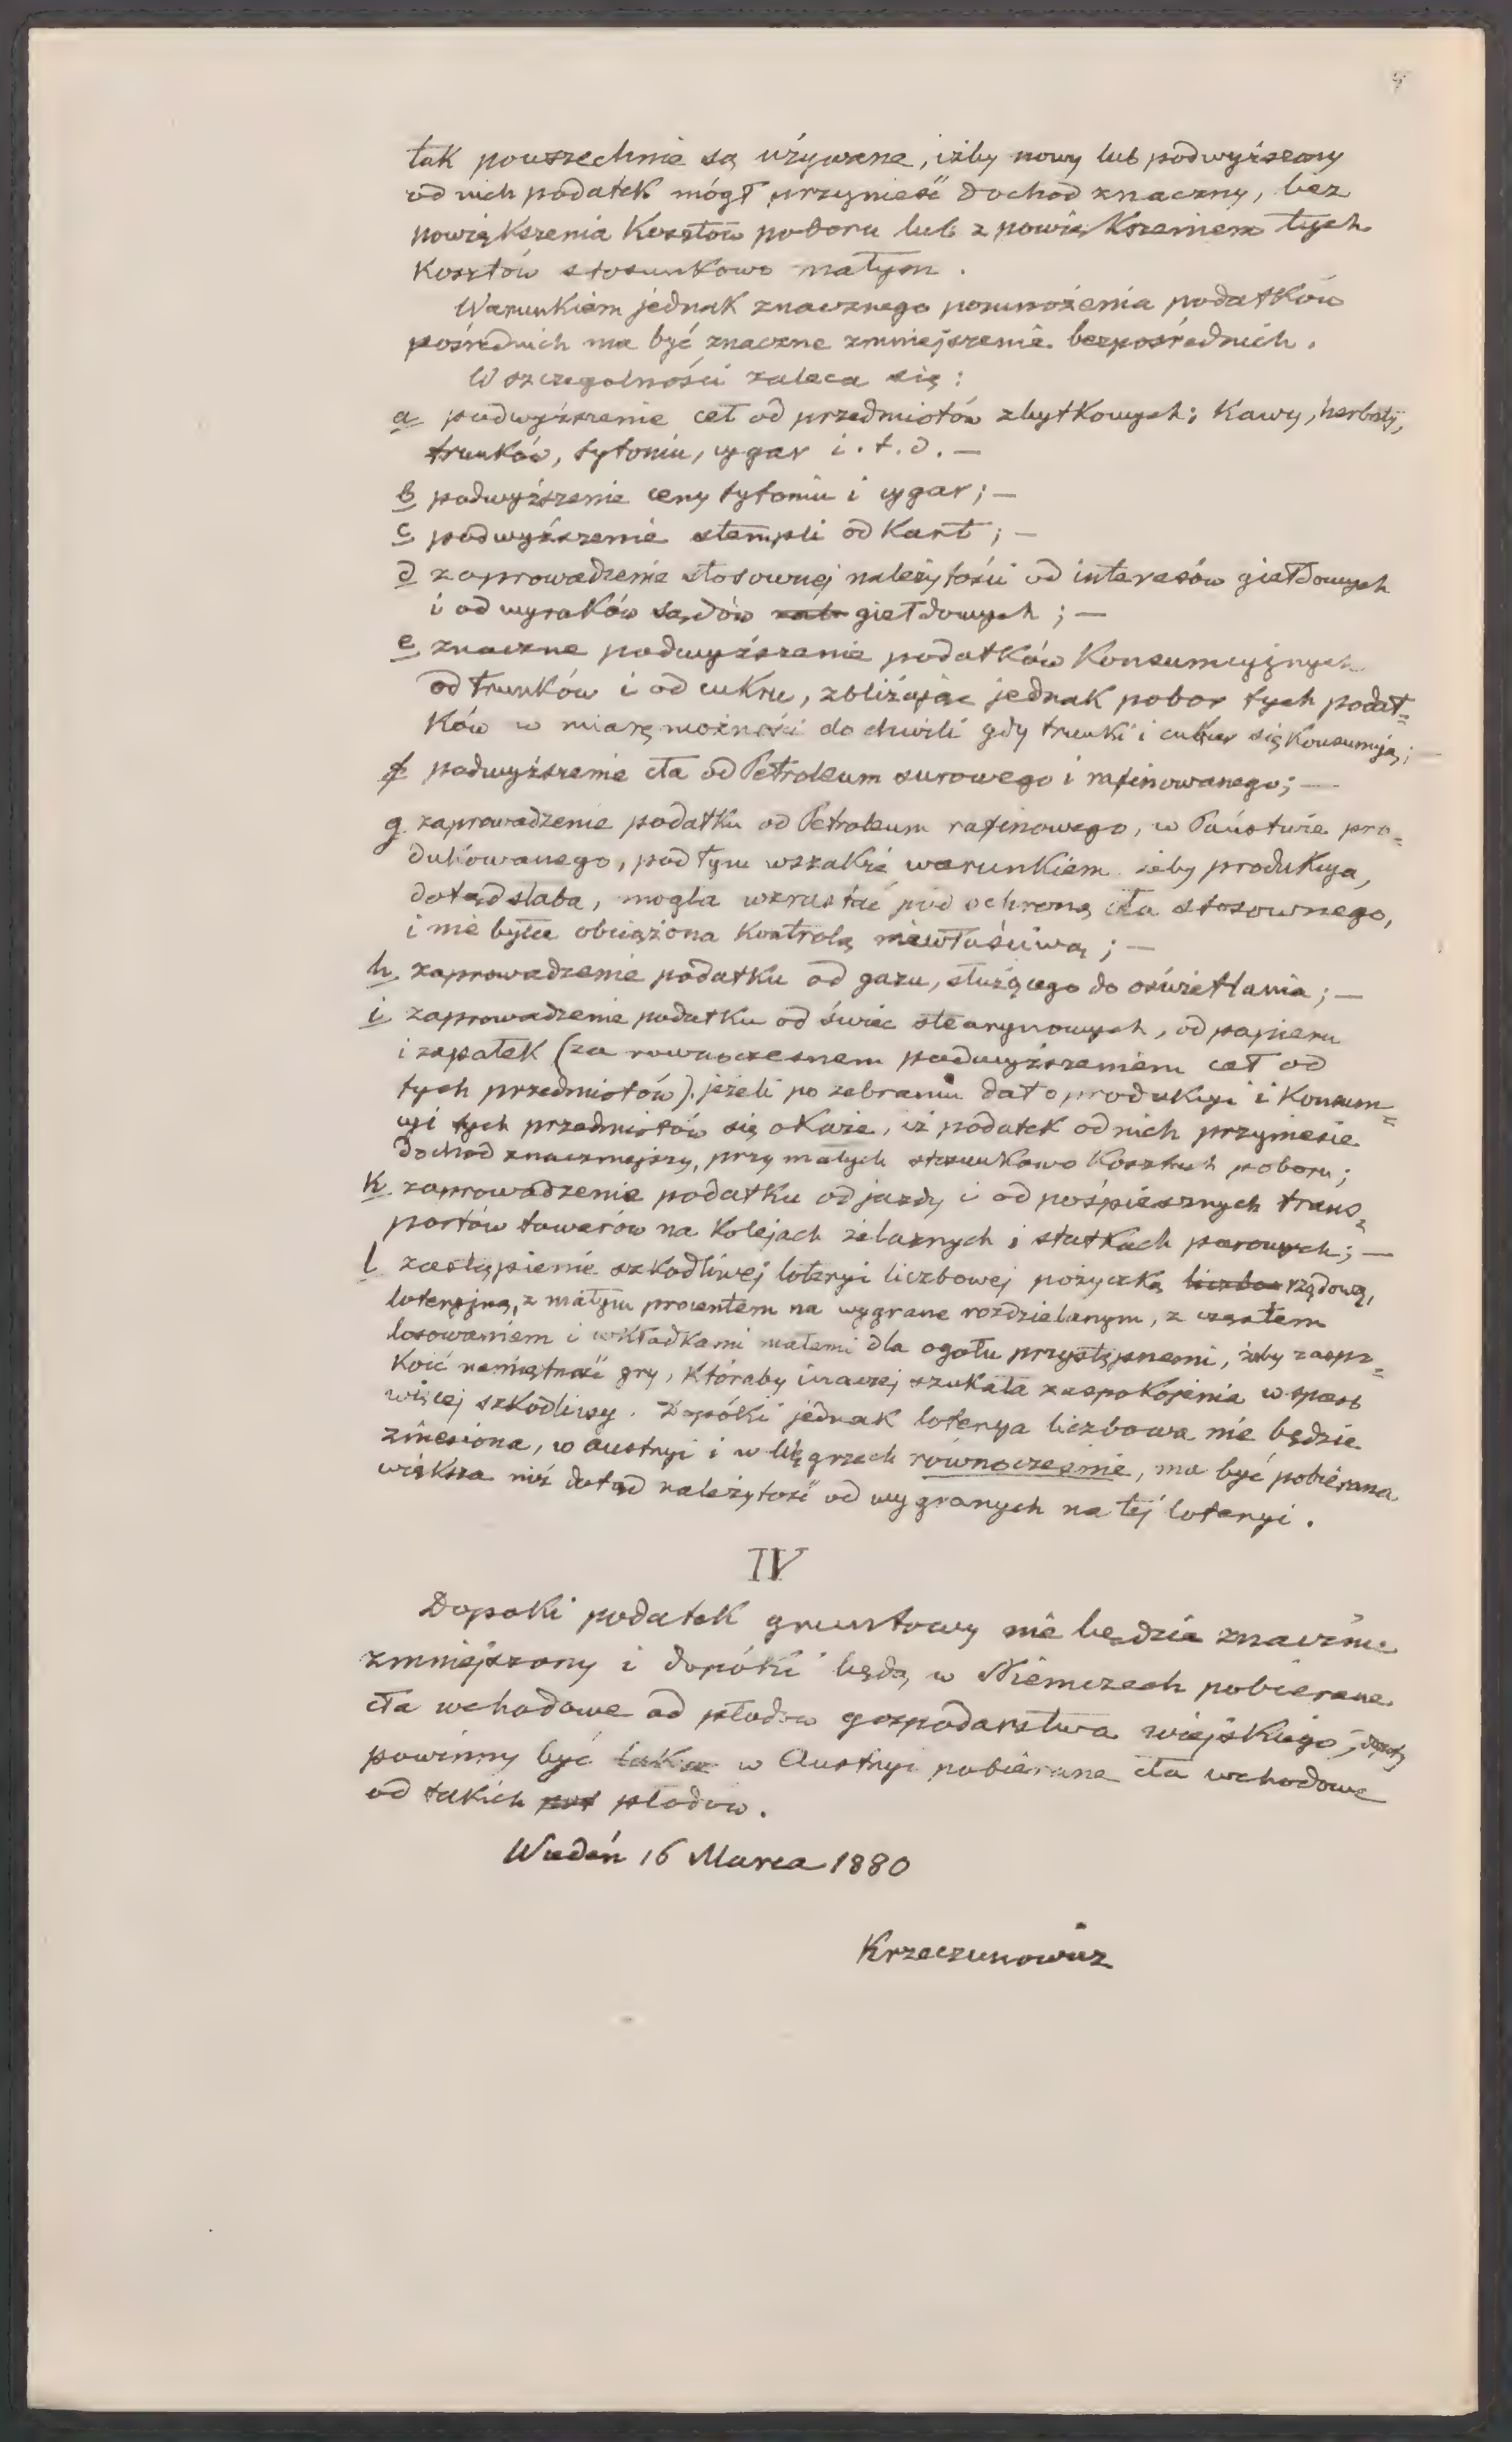 tak powszechnie są używane, iżby nowy lub podwyższony
od nich podatek mógł przynieść dochod znaczny, bez
powiększenia Kosztów poboru lub z powiększeniem tych
Kosztów stosunkowo małym.
Warunkiem jednak znacznego pomnożenia podatków
pośrednich ma być znaczne zmniejszenie bezpośrednich.
W szczegolności zaleca się:
a podwyższenie ceł od przedmiotów zbytkowych; Kawy, herbaty,
trunków, tytoniu, cygar i.t.d. —
b podwyższenie ceny tytoniu i cygar; —
c podwyższenie stempli od Kart; —
d zaprowadzenie stosownej należytości od interesów giełdowych
i od wyroków sądów giełdowych; —
e znaczne podwyższenie podatków Konsumcyjnych
od trunków i od cukru, zbliżając jednak pobor tych podat=
Ków w miarę możności do chwili gdy trunki i cukier się Konsumują; —
f podwyższenie cła od Petroleum surowego i rafinowanego; —
g zaprowadzenie podatku od Petroleum rafinowego, w Państwie pro=
dukowanego, pod tym wszakże warunkiem żeby produkcya,
dotąd słaba, mogła wzrastać pod ochroną cła stosownego,
i nie była obciążona Kontrolą niewłaściwą; —
h zaprowadzenie podatku od gazu, służącego do oświetlania; —
i zaprowadzenie podatku od świec stearynowych, od papieru
i zapałek (za rownoczesnem podwyższeniem ceł od
tych przedmiotów) jeżeli po zebraniu dat o produkcyi i Konsum=
cyi tych przedmiotów się okaże, iż podatek od nich przyniesie
dochod znaczniejszy, przy małych stosunkowo Kosztach poboru;
K zaprowadzenie podatku od jazdy i od pośpiesznych trans=
portów towarów na Kolejach żelaznych i statkach parowych; —
l zastąpienie szkodliwej loteryi liczbowej pożyczką liczbow rządową,
loteryjną, z małym procentem na wygrane rozdzielanym, z częstem
losowaniem i wkładkami małemi dla ogołu przystępnemi, żeby zaspo=
koić namiętność gry, któraby inaczej szukała zaspokojenia w sposob
więcej szkodliwy. Dopóki jednak loterya liczbowa nie będzie
zniesiona, w Austryi i w Węgrzech równocześnie, ma być pobierana
większa niż dotąd należytość od wygranych na tej loteryi.
IV
Dopoki podatek gruntowy nie będzie znacznie
zmniejszony i dopóki będą w Niemczech pobierane
cła wchodowe od płodow gospodarstwa wiejskiego,
powinny być także w Austryi pobierane cła wchodowe
od takich płodow.
Wiedeń 16 Marca 1880
Krzeczunowicz